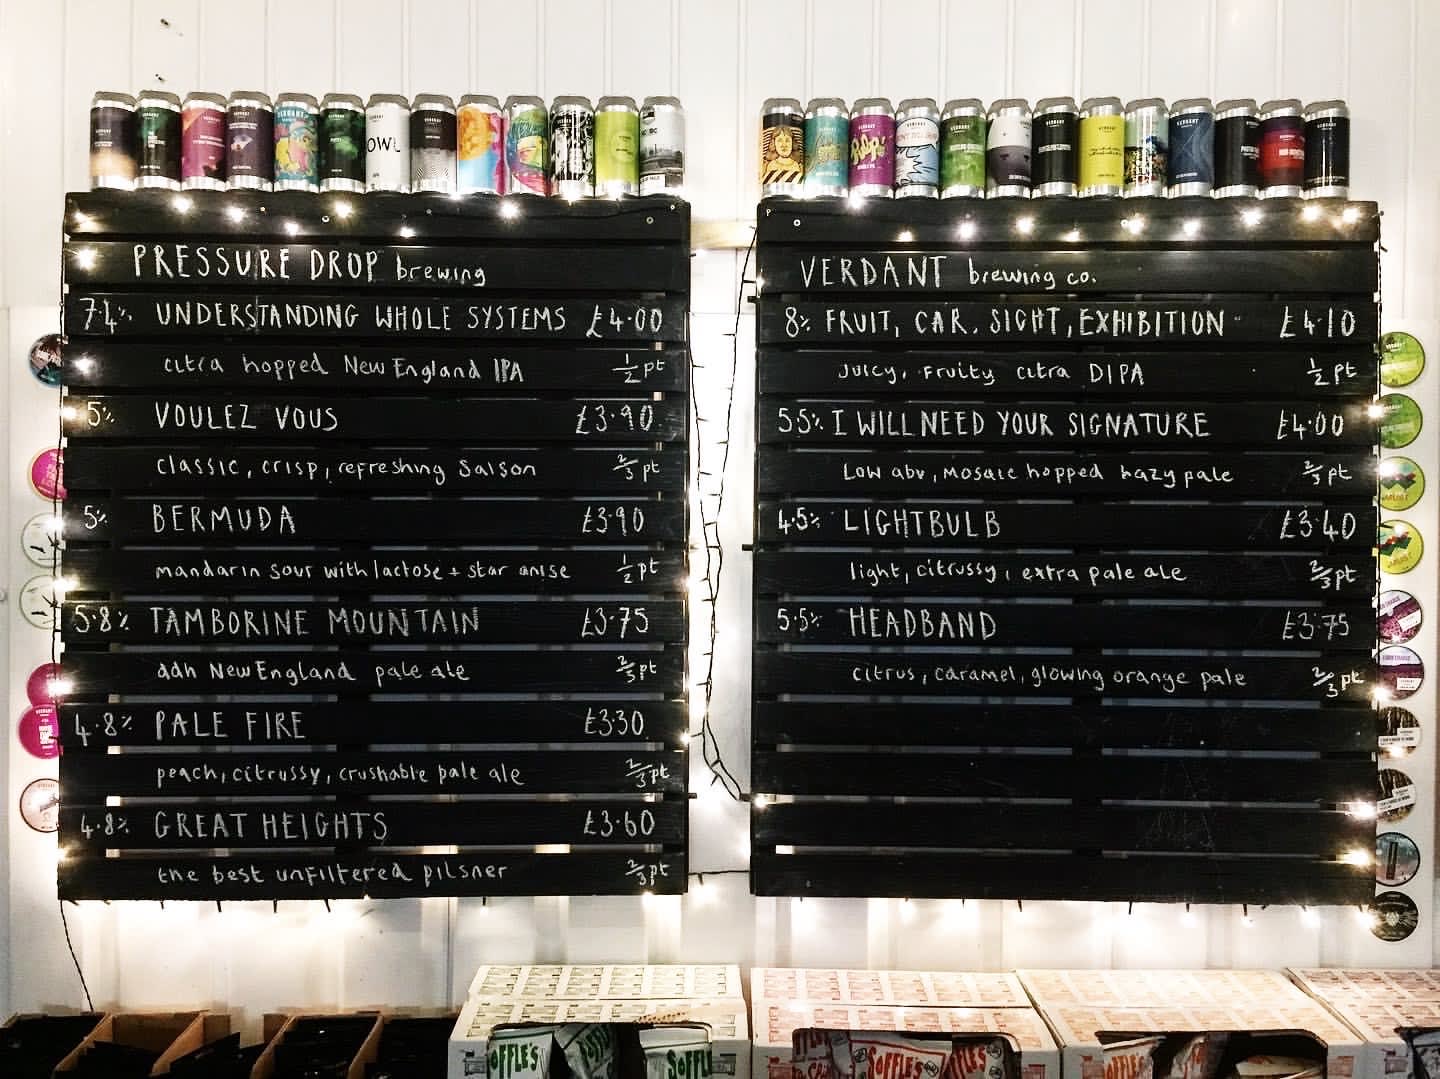 PRESSURE DROP brewing
7.4% UNDERSTANDING WHOLE SYSTEMS £4.00
citra hopped New England IPA 1/2 pt
5% VOULEZ VOUS £3.90
classic, crisp, refreshing Saison 2/3 pt
5% BERMUDA £3.90
mandarin sour with lactose + star anise 1/2 pt
5.8% TAMBORINE MOUNTAIN £3.75
ddh New England pale ale 2/3 pt
4.8% PALE FIRE £3.30
peach, citrussy, crushable pale ale 2/3 pt
4.8% GREAT HEIGHTS £3.60
the best unfiltered pilsner 2/3 pt
VERDANT brewing co.
8% FRUIT, CAR, SIGHT, EXHIBITION £4.10
juicy, fruity citra DIPA 1/2 pt
5.5% I WILL NEED YOUR SIGNATURE £4.00
Low abv, mosaic hopped hazy pale 2/3 pt
4.5% LIGHTBULB £3.40
light, citrussy, extra pale ale 2/3 pt
5.5% HEADBAND £3.75
citrus, caramel, glowing orange pale 2/3 pt
OWL
Pulp!
OFFLE'S
SOFFLE
SOFFLE'S